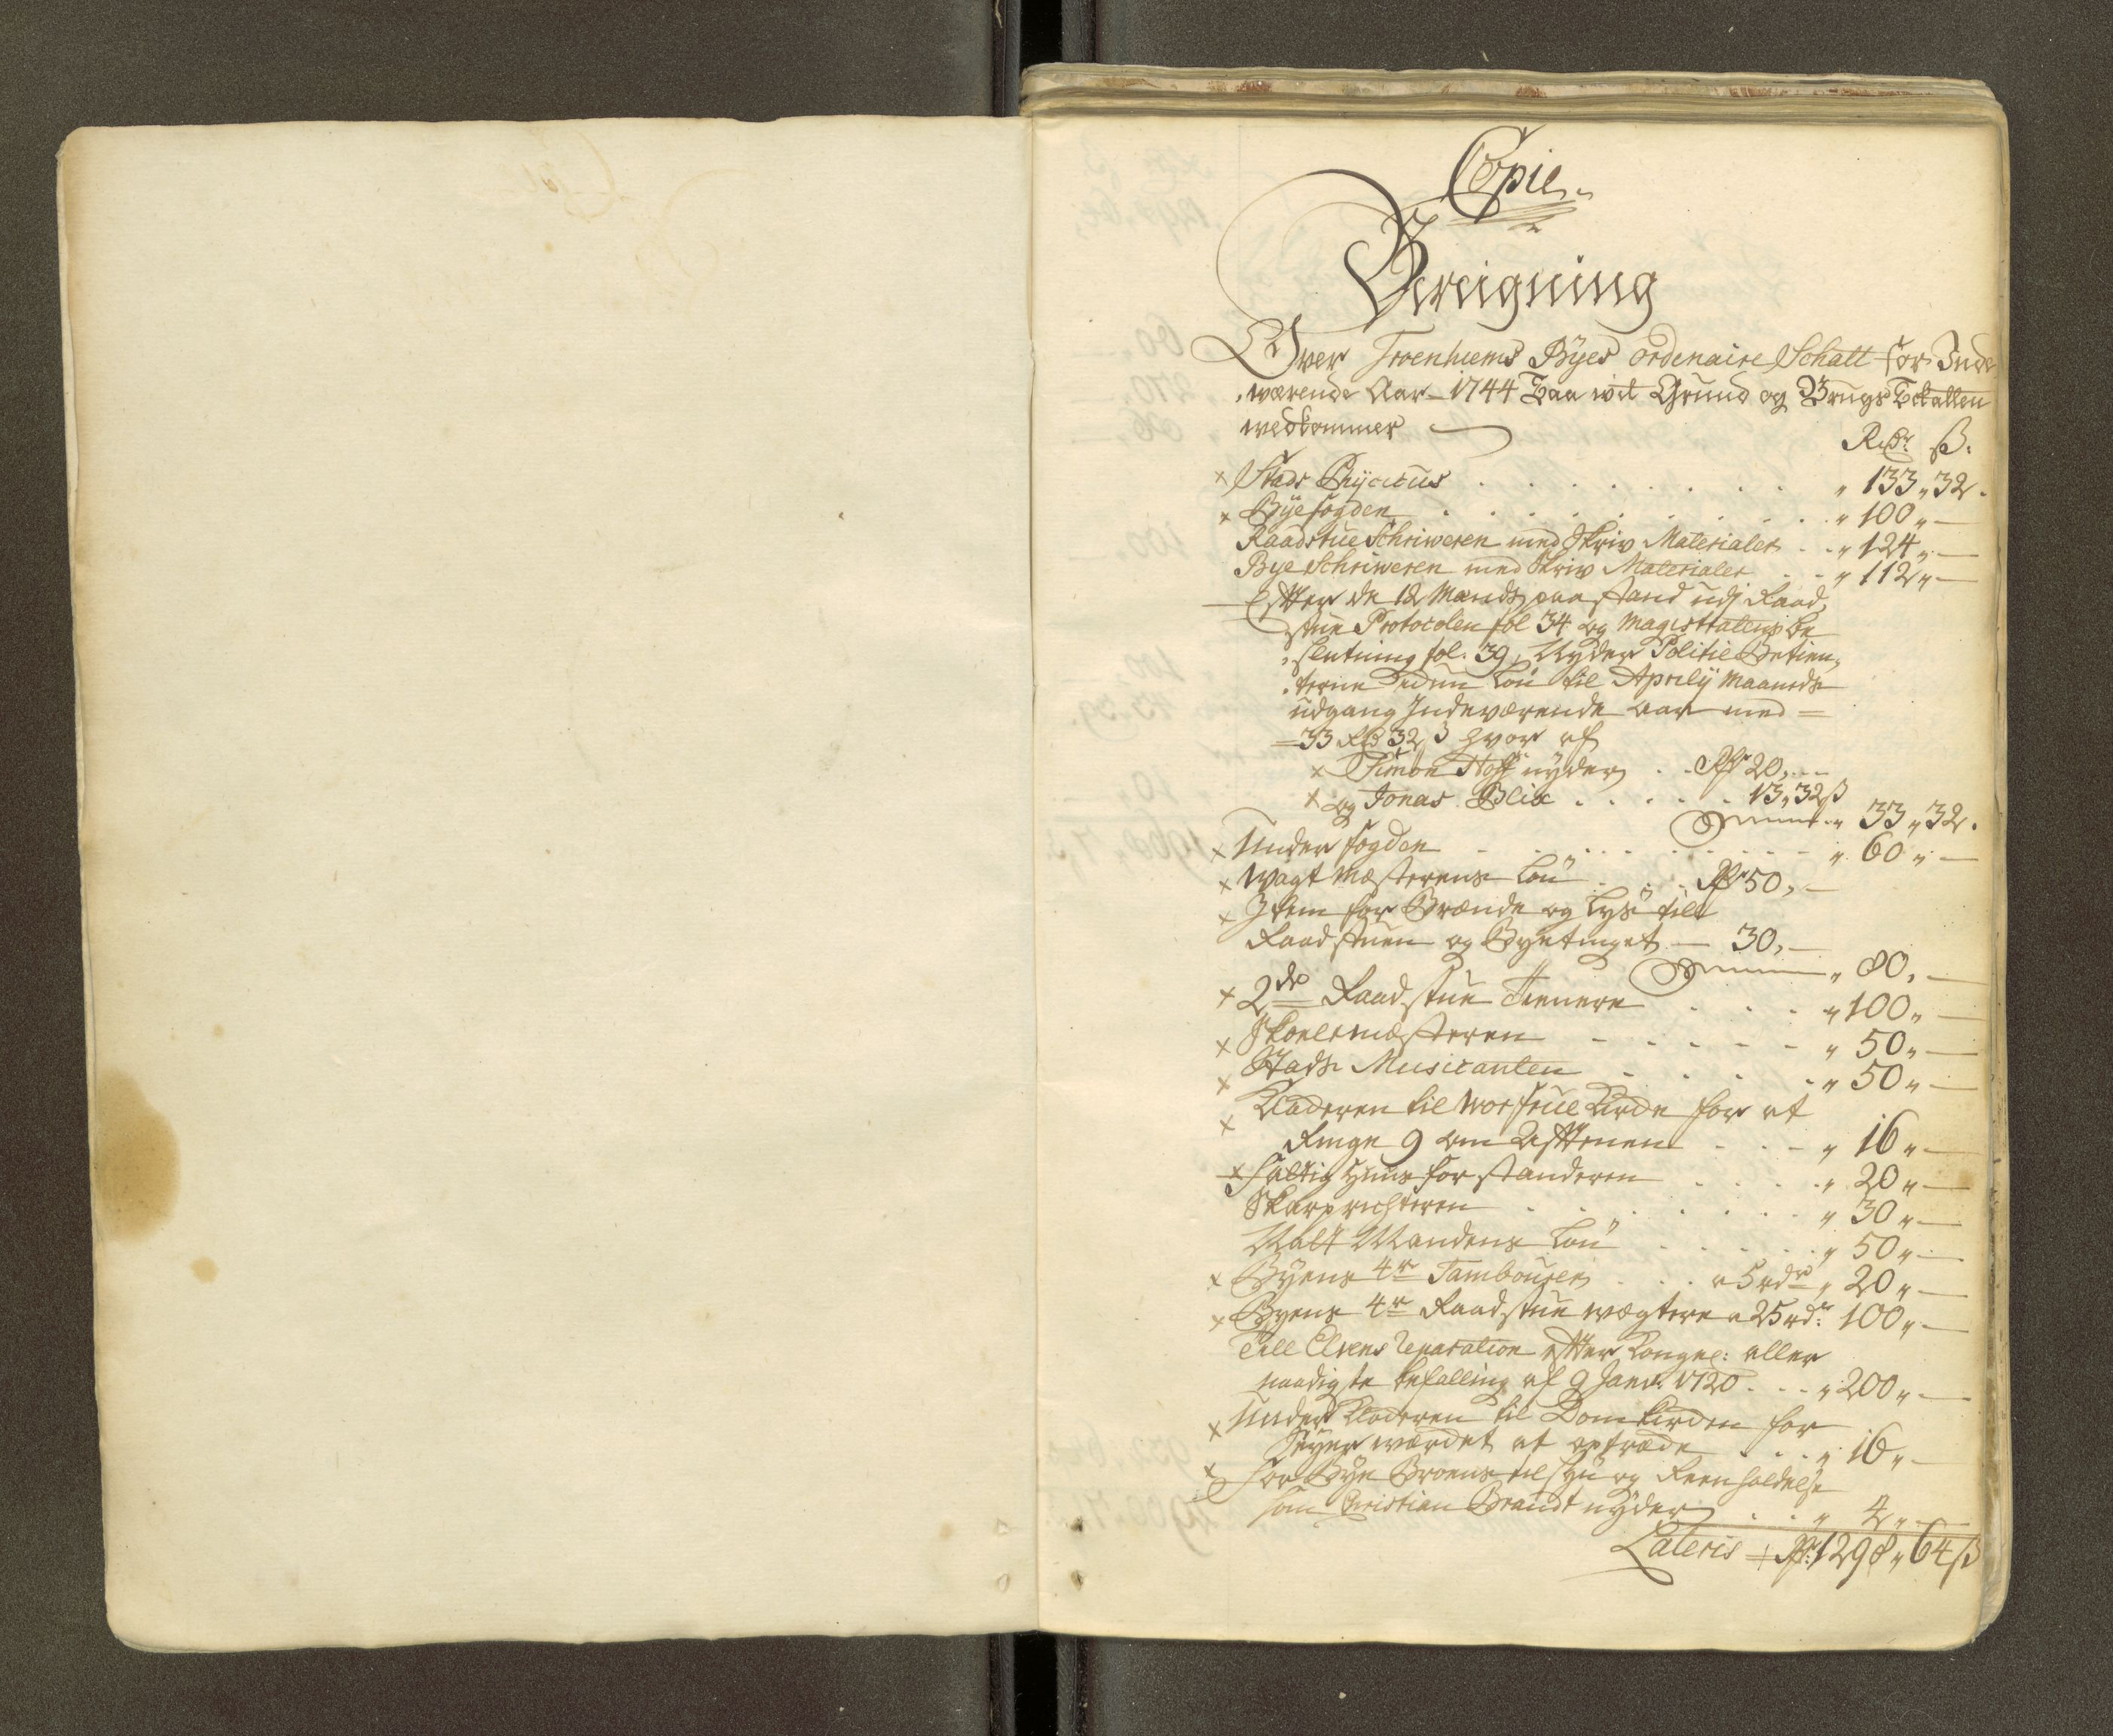 Copie.
Bereigning
Over Tronhiems Byes ordenaire Schatt for Inde
værende Aar 1744 saa vit Grund og Brugs Schatten
vedkommer
Rdr. ß.
× Stads Phycicus . . . " 133 " 32.
× Byefogden . . . " 100 " —
Raadstue Schriweren med Skriv Materialer . . " 124 " —
Bye Schriweren med Skriv Materialer . . " 112 " —
Efter de 12 Mænds paastand udj Raad,
stue Protocolen fol 34 og Magistratens be
slutning fol. 39, Nyder Politie Betien,
terne deres Løn til Aprily Maaneds
udgang Indeværende Aar med =
= 33 Rd 32 ß hvor af
× Simon Hoff nyder . . Rdr 20, —
× og Jonas Blix . . . . . 13, 32 ß
Summa " 33 " 32.
× Underfogden . . . " 60 " —
× Vagt Mesterens Løn . . . Rdr 50, —
× Item for Brænde og Lys til
Raadstuen og Byetinget — 30, —
Summa " 80, —
× 2de Raadstue Tienere . . . " 100 " —
× Skolemesteren . . . " 50 " —
× Stads Musicanten . . . " 50 " —
× Klockeren til Vor frue Kirke for at
Ringe 9 om Aftenen . . . " 16 " —
× Fattig Huus forstanderen . . . " 20 " —
Skarprichteren . . . " 30 " —
Natt Mandens Løn . . . " 50 " —
× Byens 4re Tambourer . . . a 5 rdr " 20 " —
× Byens 4re Raadstue vægtere a 25 rdr 100 " —
Till Elvens Reparation efter Kongel: aller
naadigste befalling af 9 Janr. 1720 . . . " 200 " —
× Under Klockeren til Domkirken for
Seyer værket at optrække . . . " 16 " —
× For Bye Broens tilsyn og Reenholdelse
som Christian Brandt nyder . . . " 4 " —
Lateris Rdr 1298 " 64 ß